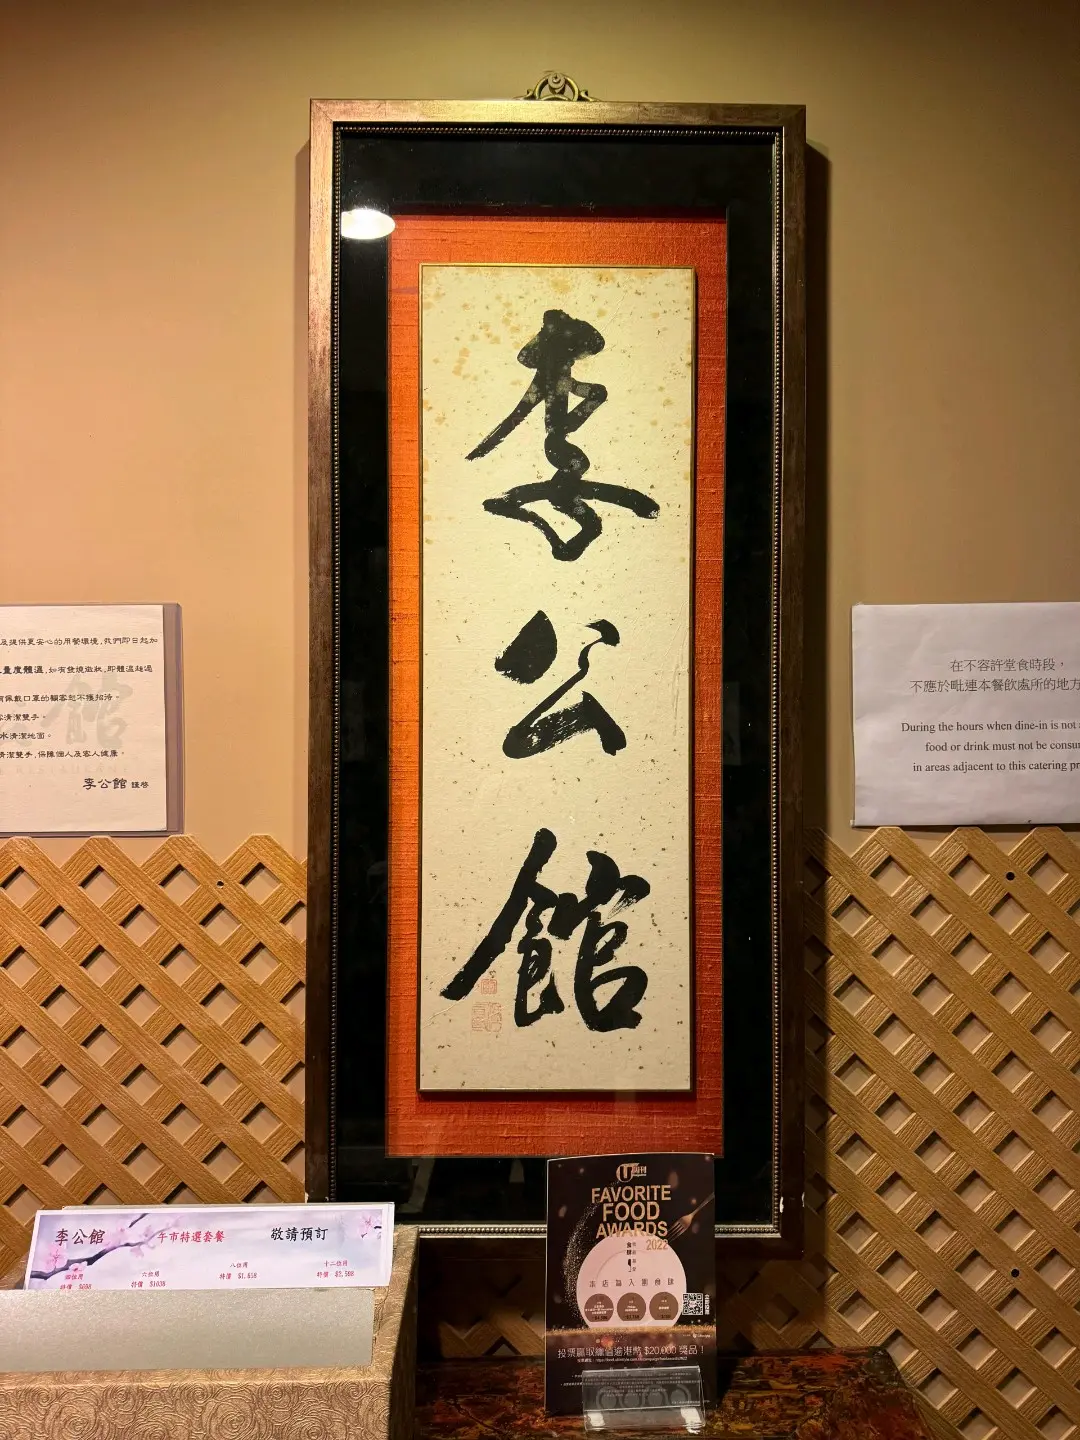 李公館
及提供更安心的用餐環境,我們即日起加
量度體溫,如有發燒徵狀,即體溫超過
佩戴口罩的顧客恕不獲招待。
清潔雙手。
水清潔地面。
清潔雙手,保障個人及客人健康。
李公館 謹啓
在不容許堂食時段,
不應於毗連本餐飲處所的地方
During the hours when dine-in is not
food or drink must not be consu
in areas adjacent to this catering pr
李公館 午市特選套餐 敬請預訂
四位用 六位用 八位用 十二位用
特價 $698 特價 $1038 特價 $1,658 特價 $2,588
U周刊
FAVORITE
FOOD
AWARDS
2022
本店為入圍食肆
投票贏取總值逾港幣 $20,000 獎品!